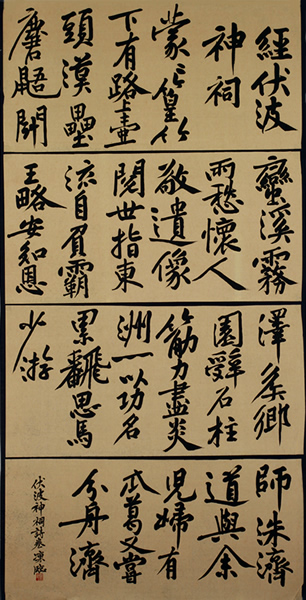 經伏波
神祠
蒙〻篁竹
下有路上壺
頭漢壘
麏鼯鬭
蠻溪霧
雨愁懷人
敬遺像
閱世指東
流自負霸
王略安知恩
澤侯鄉
園辭石柱
筋力盡炎
洲一以功名
累飜思馬
少游
師洙濟
道與余
兒婦有
瓜葛又嘗
分舟濟
伏波神祠詩卷 臨